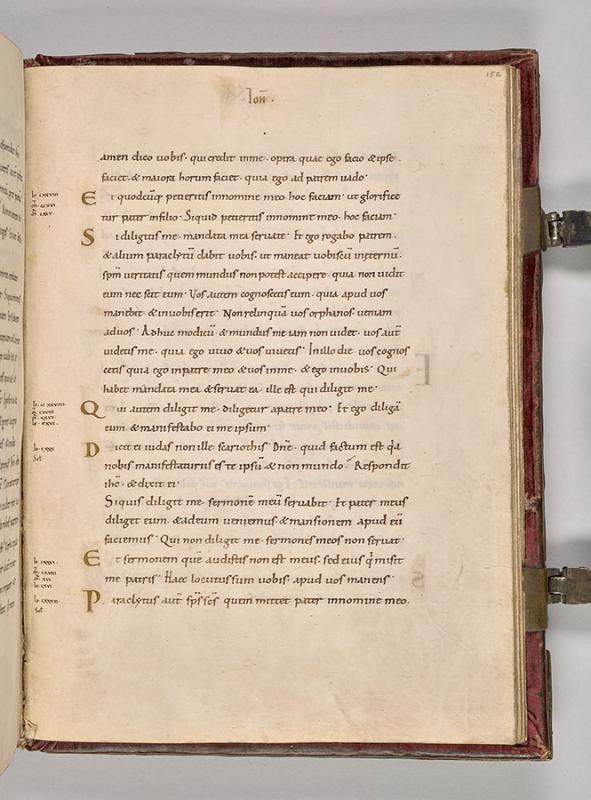 152
Ioh̄
amen dico uobis· qui credit inme· opera quae ego facio & ipse
faciet· & maiora horum faciet· quia ego ad patrem uado·
E t quodcūq; petieritis innomine meo hoc faciam· ut glorifice
tur pater infilio· Siquid petieritis innomine meo· hoc faciam·
S i diligitis me· mandata mea seruate· Et ego rogabo patrem·
& alium paraclytū dabit uobis· ut maneat uobiscū inęternū·
spm̄ ueritatis quem mundus non potest accipere· quia non uidit
eum nec scit eum· Uos autem cognoscetis eum· quia apud uos
manebit & inuobis erit· Non relinquā uos orphanos· ueniam
aduos· Adhuc modicū· & mundus me iam non uidet· uos aut̄
uidetis me· quia ego uiuo & uos uiuetis· In illo die uos cognos
cetis quia ego inpatre meo & uos inme· & ego inuobis· Qui
habet mandata mea & seruat ea· ille est qui diligit me·
Q ui autem diligit me· diligetur apatre meo· Et ego diligā
eum & manifestabo ei me ipsum·
D icit ei iudas non ille scariothis· Dn̄e· quid factum est q̄a
nobis manifestaturus es te ipsū & non mundo· Respondit
ihc̄· & dixit ei·
Siquis diligit me· sermonē meū seruabit· Et pater meus
diliget eum· & adeum ueniemus & mansionem apud eū
faciemus· Qui non diligit me· sermones meos non seruat·
E t sermonem quē audistis non est meus· sed eius q̄ misit
me patris· Haec locutus sum uobis· apud uos manens·
P araclytus aut̄ sp̄s sc̄s quem mittet pater innomine meo·